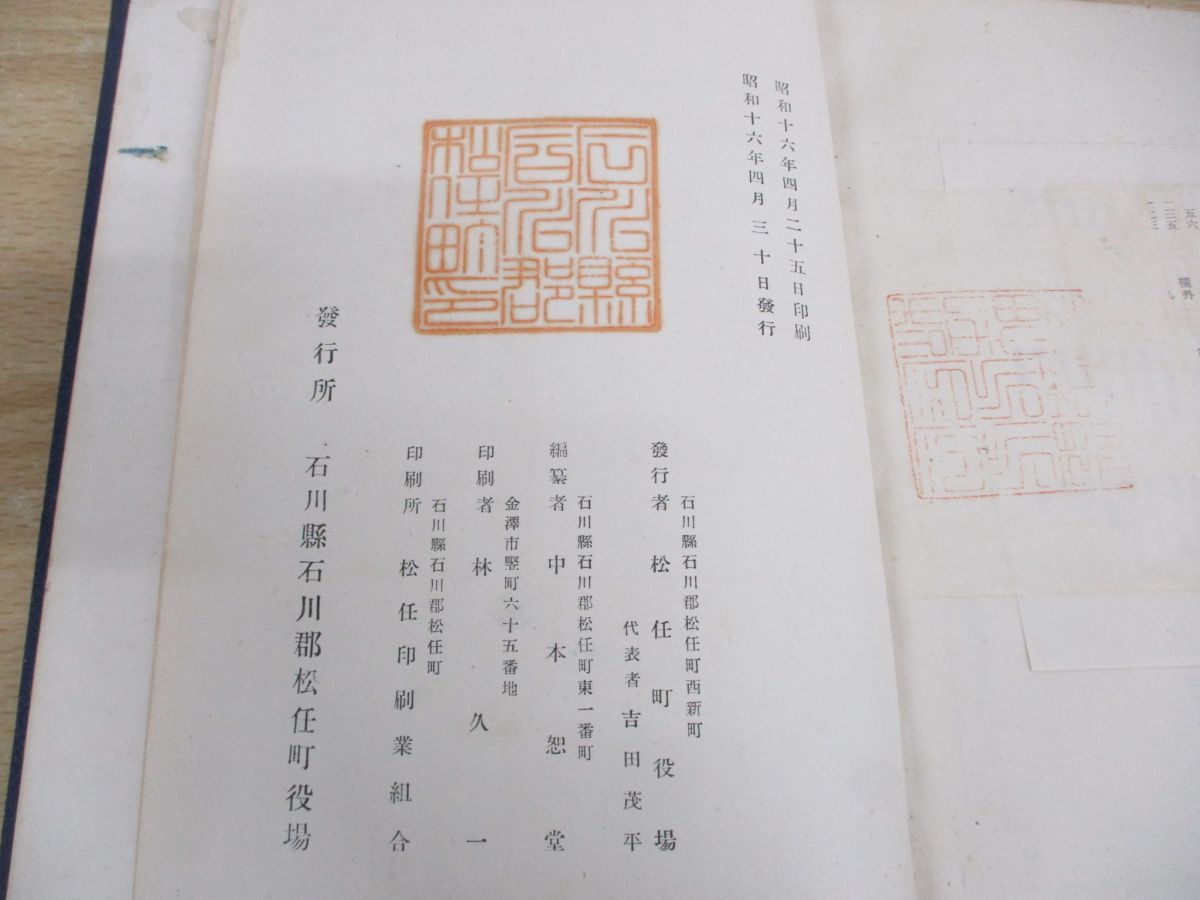 昭和十六年四月二十五日印刷
昭和十六年四月三十日發行
石川縣石川郡松任町西新町
發行者 松任町役場
代表者 吉田茂平
石川縣石川郡松任町東一番町
編纂者 中本恕堂
金澤市竪町六十五番地
印刷者 林久一
石川縣石川郡松任町
印刷所 松任印刷業組合
發行所 石川縣石川郡松任町役場
石川縣
石川郡
松任町印
五六
二三五
欄外